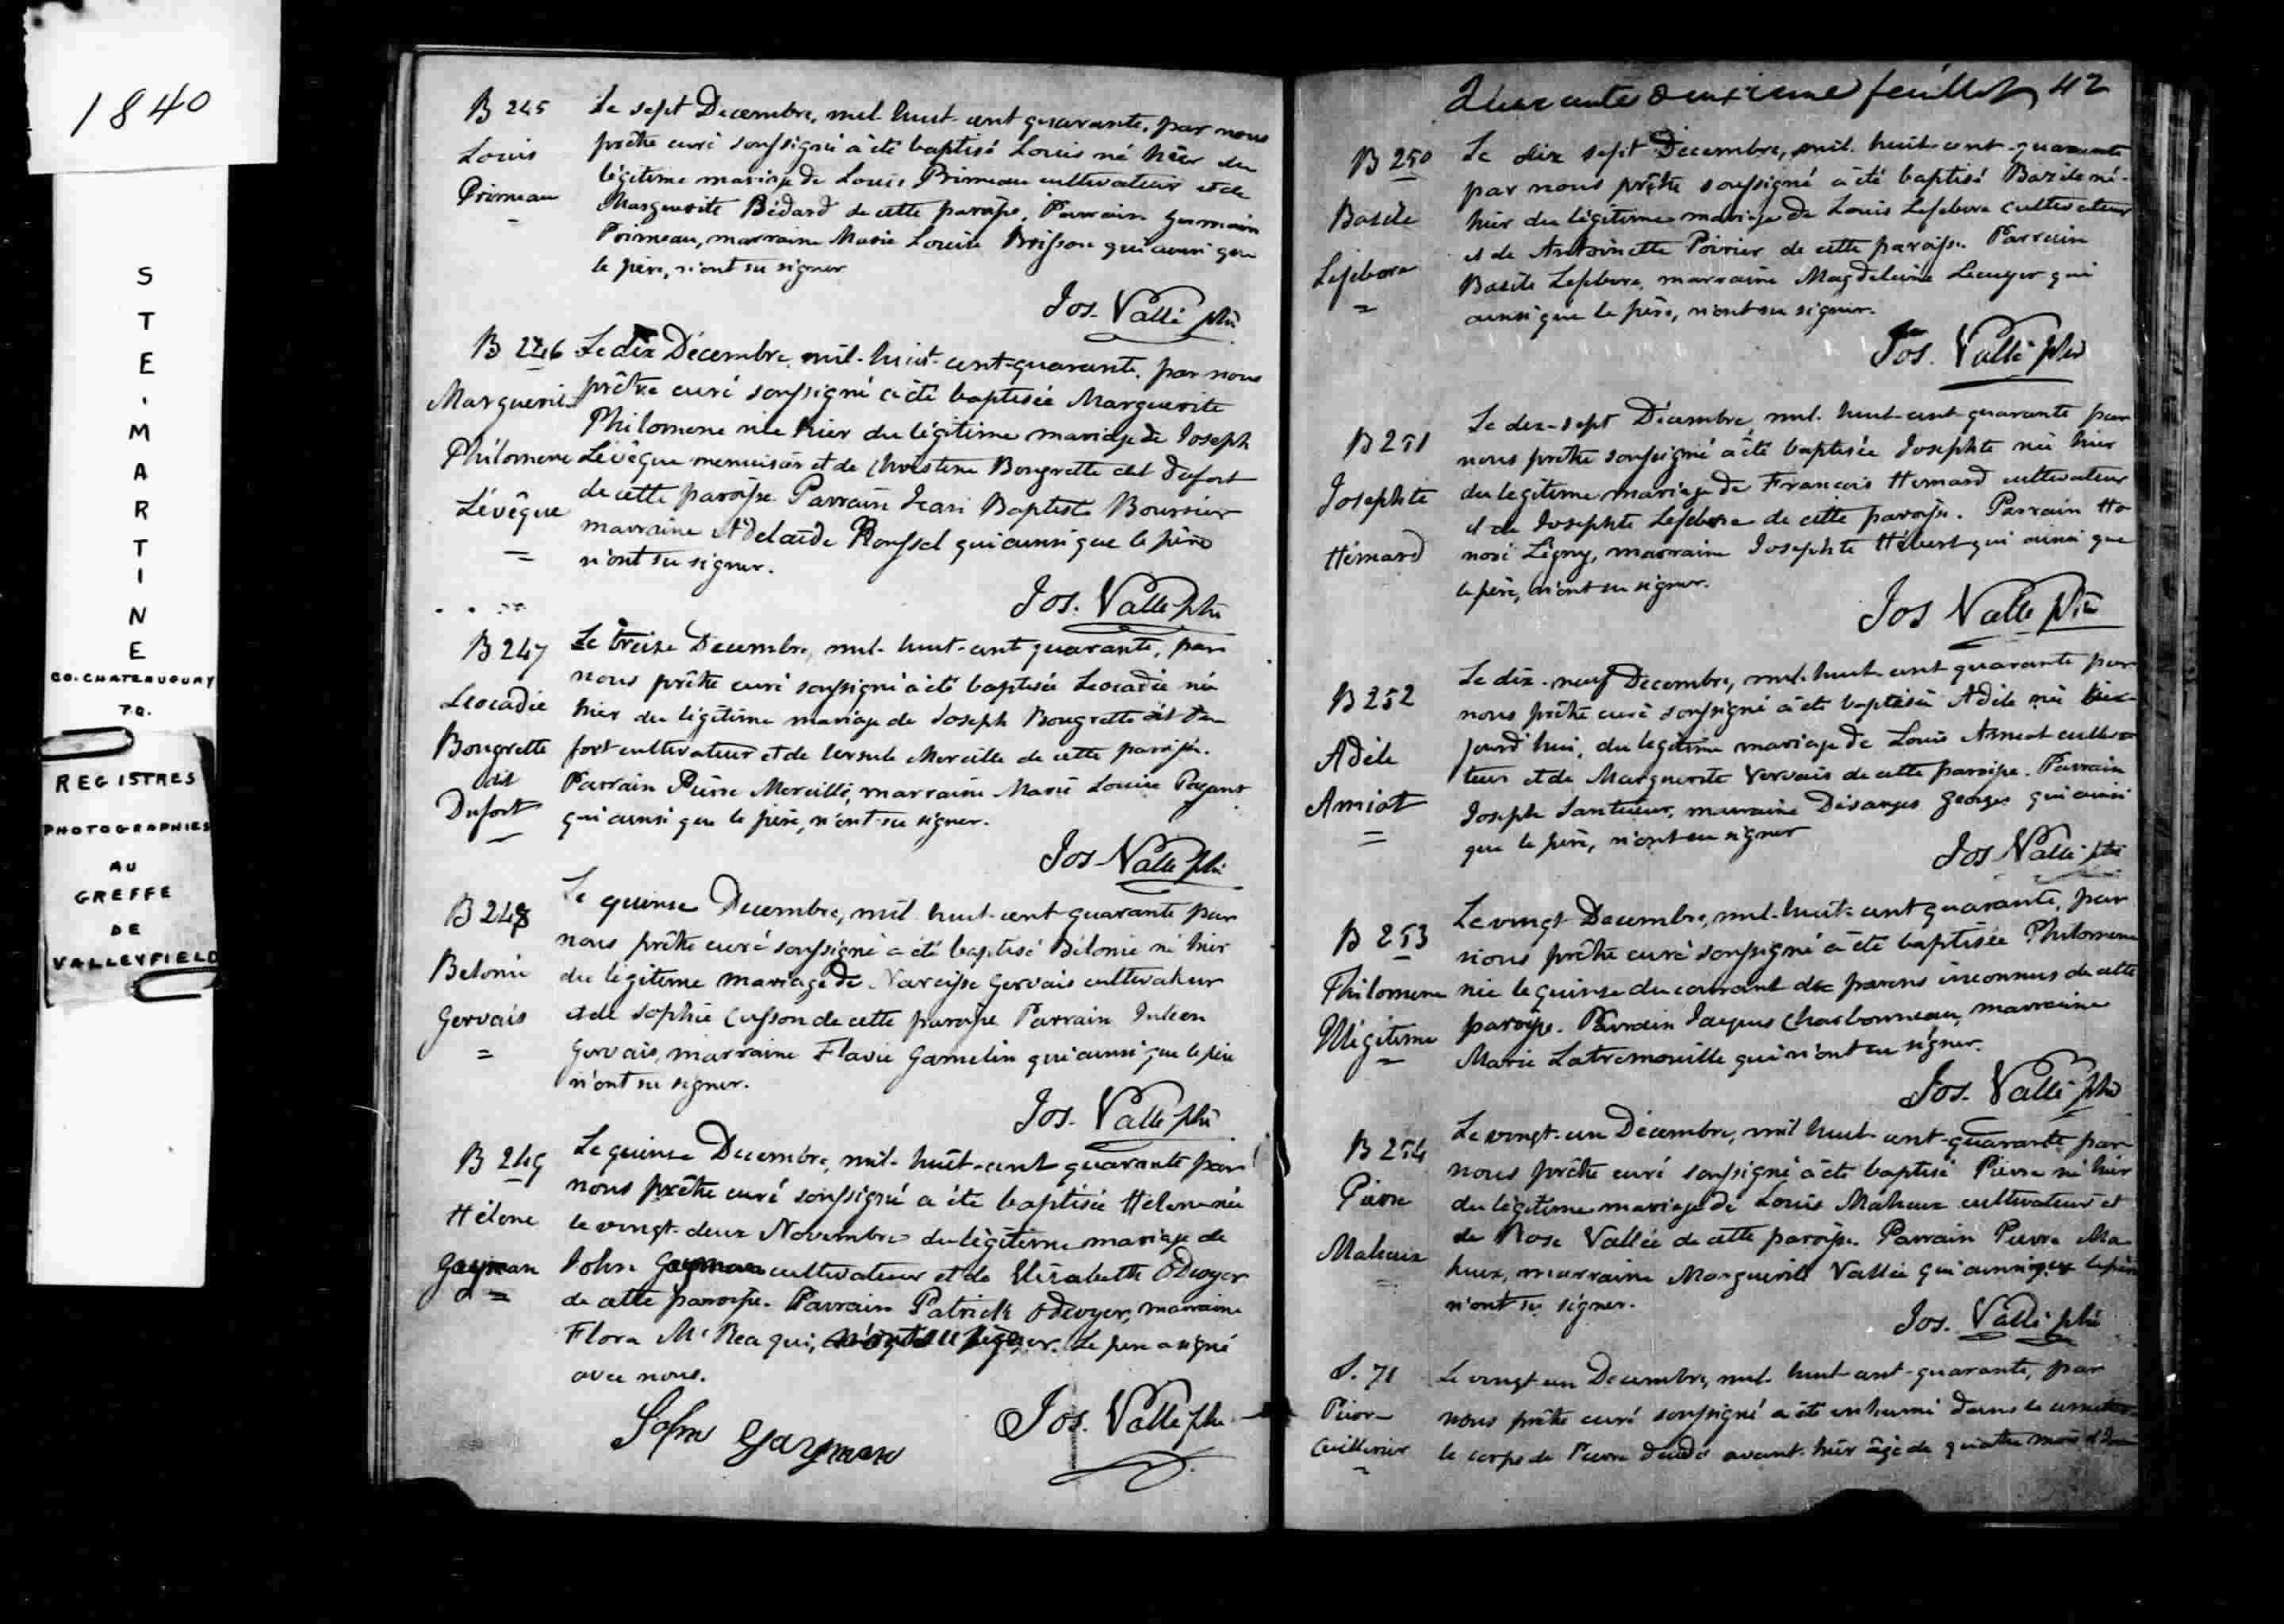 1840
STE. MARTINE
CO. CHATEAUGUAY
P.Q.
REGISTRES
PHOTOGRAPHIES
AU
GREFFE
DE
VALLEYFIELD
B 245
Louis
Primeau
Le sept Decembre, mil huit-cent quarante, par nous
prêtre curé soussigné a été baptisé Louis né hier du
légitime mariage de Louis Primeau cultivateur et de
Marguerite Bédard de cette paroisse. Parrain Germain
Primeau, marraine Marie Louise Brisson qui ainsi que
le père, n'ont su signer
Jos. Vallé ptre
B 246
Marguerite
Philomene
Lévêque
Le dix Décembre, mil-huit-cent-quarante, par nous
prêtre curé soussigné a été baptisée Marguerite
Philomene née hier du légitime mariage de Joseph
Lévêque menuisier et de Christine Bougrette dit Dufort
de cette paroisse. Parrain Jean Baptiste Boursier
marraine Adelaïde Roussel qui ainsi que le père
n'ont su signer.
Jos. Vallé ptre
B 247
Leocadie
Bougrette
dit
Dufort
Le treize Decembre, mil-huit-cent quarante, par
nous prêtre curé soussigné a été baptisée Leocadie née
hier du légitime mariage de Joseph Bougrette dit Du
fort cultivateur et de Ursule Mercille de cette paroisse.
Parrain Pierre Mercille, marraine Marie Louise Payant
qui ainsi que le père, n'ont su signer.
Jos Vallé ptre
B 248
Belonie
Gervais
Le quinse Decembre, mil huit-cent quarante par
nous prêtre curé soussigné a été baptisé Bélonie né hier
du légitime mariage de Narcisse Gervais cultivateur
et de Sophie Cusson de cette paroisse Parrain Julien
Gervais, marraine Flavie Gamelin qui ainsi que le père
n'ont su signer.
Jos. Vallé ptre
B 249
Hélène
Gayman
Le quinse Decembre, mil-huit-cent quarante par
nous prêtre curé soussigné a été baptisée Helene née
le vingt-deux Novembre du légitime mariage de
John Gayman cultivateur et de Elizabeth Odwyer
de cette paroisse. Parrain Patrick Odwyer, marraine
Flora McRea qui, n'ont su signer. Le pere a signé
avec nous.
John Gayman
Jos. Vallé ptre
Quarante deuxieme feuillet 42
B 250
Basile
Lefebvre
Le dix sept Decembre, mil huit-cent-quarante
par nous prêtre soussigné a été baptisé Bazile né
hier du légitime mariage de Louis Lefebvre cultivateur
et de Antoinette Poirier de cette paroisse. Parrain
Basile Lefebvre, marraine Magdeleine Lecuyer qui
ainsi que le père, n'ont su signer.
Jos. Vallé ptre
B 251
Josephte
Hémard
Le dix-sept Décembre, mil-huit-cent quarante par
nous prêtre soussigné a été baptisée Josephte née hier
du légitime mariage de Francois Hemard cultivateur
et de Josephte Lefebvre de cette paroisse. Parrain Ho
noré Ligny, marraine Josephte Hébert qui ainsi que
le père, n'ont su signer.
Jos Vallé ptre
B 252
Adèle
Amiot
Le dix-neuf Decembre, mil-huit-cent quarante par
nous prêtre curé soussigné a été baptisée Adèle née
jourd'hui, du légitime mariage de Louis Amiot cultiva
teur et de Marguerite Gervais de cette paroisse. Parrain
Joseph Santieur, marraine Désanges Georges qui ainsi
que le père, n'ont su signer
Jos Vallé ptre
B 253
Philomene
Illégitime
Le vingt Decembre, mil-huit-cent quarante, par
nous prêtre curé soussigné a été baptisée Philomene
née le quinse du courant de parens inconnus de cette
paroisse. Parrain Jacques Charbonneau, marraine
Marie Latremouille qui n'ont su signer.
Jos. Vallé ptre
B 254
Pierre
Maheux
Le vingt-un Décembre, mil huit-cent-quarante par
nous prêtre curé soussigné a été baptisé Pierre né hier
du légitime mariage de Louis Maheux cultivateur et
de Rose Vallée de cette paroisse. Parrain Pierre Ma
heux, marraine Marguerite Vallée qui ainsi que le père
n'ont su signer.
Jos. Vallé ptre
S. 71
Pierre
Cuillerier
Le vingt-un Decembre, mil-huit-cent-quarante, par
nous prêtre curé soussigné a été inhumé dans le cimetière
le corps de Pierre décédé avant-hier âgé de quatre mois et